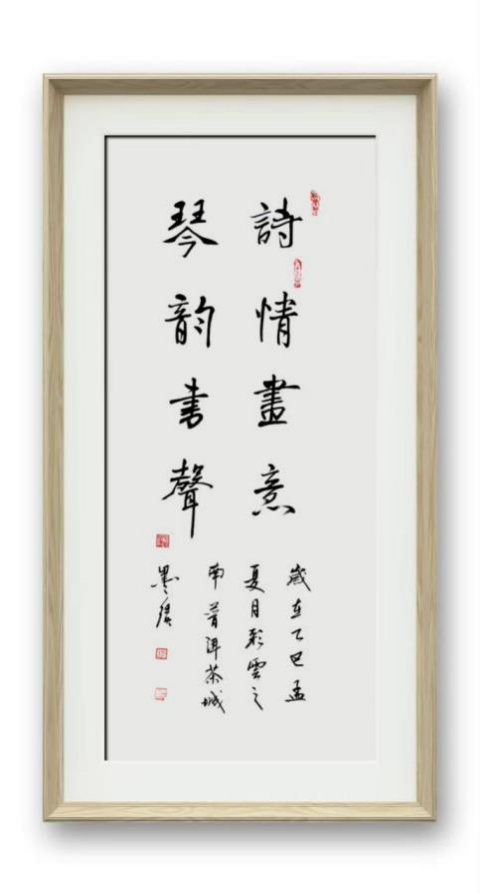 詩情畫意
琴韵書聲
歲在乙巳孟
夏月彩雲之
南普洱茶城
墨